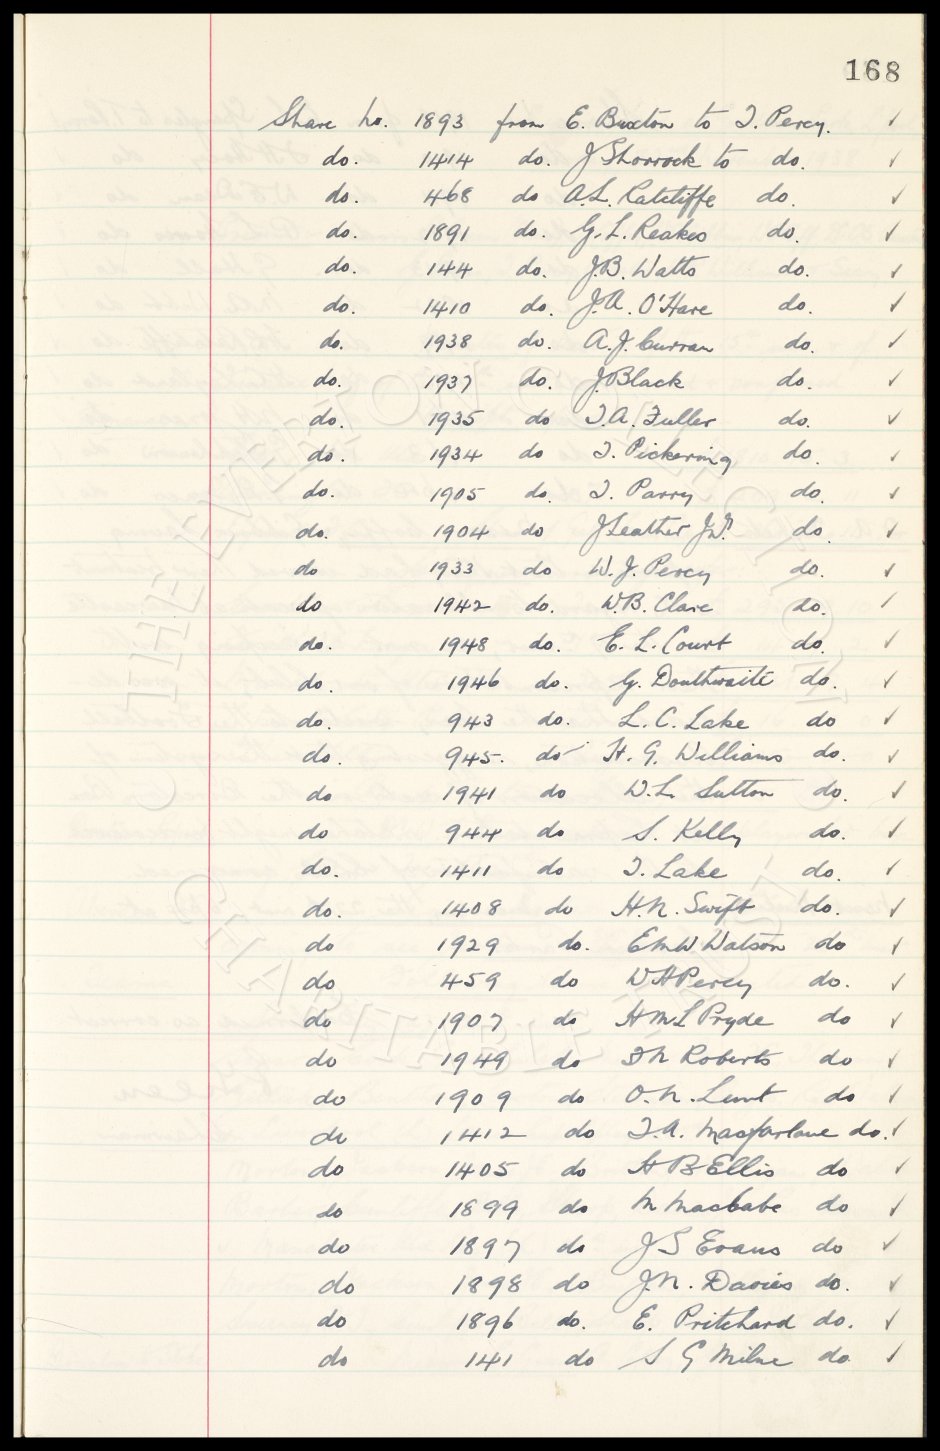 168
Share No. 1893 from E. Buxton to T. Percy. ✓
do. 1414 do. J Shorrock to do. ✓
do. 468 do A.L. Ratcliffe do. ✓
do. 1891 do. G. L. Reakes do. ✓
do. 144 do. J.B. Watts do. ✓
do. 1410 do. J.A. O'Hare do. ✓
do. 1938 do. A.J. Curran do. ✓
do. 1937 do. J Black do. ✓
do. 1935 do T.A. Fuller do. ✓
do. 1934 do T. Pickering do. ✓
do. 1905 do. T. Parry do. ✓
do. 1904 do J Leather do. ✓
do 1933 do W. J. Percy do. ✓
do 1942 do. W.B. Clare do. ✓
do. 1948 do. E. L. Court do. ✓
do. 1946 do. G. Douthwaite do. ✓
do. 943 do. L. C. Lake do ✓
do. 945. do H. G. Williams do. ✓
do 1941 do W.L. Sutton do. ✓
do 944 do S. Kelly do. ✓
do. 1411 do T. Lake do. ✓
do. 1408 do H.N. Swift do. ✓
do 1929 do. E M W Watson do ✓
do 459 do W H Percy do. ✓
do 1907 do H M L Pryde do ✓
do 1949 do N Roberts do ✓
do 1909 do O. N. Lunt do ✓
do 1412 do T. A. Macfarlane do. ✓
do 1405 do H B Ellis do ✓
do 1899 do M MacCabe do ✓
do 1897 do J S Evans do ✓
do 1898 do J.N. Davies do. ✓
do 1896 do. E. Pritchard do. ✓
do 141 do S G Milne do ✓
THE EVERTON COLLECTION CHARITABLE TRUST